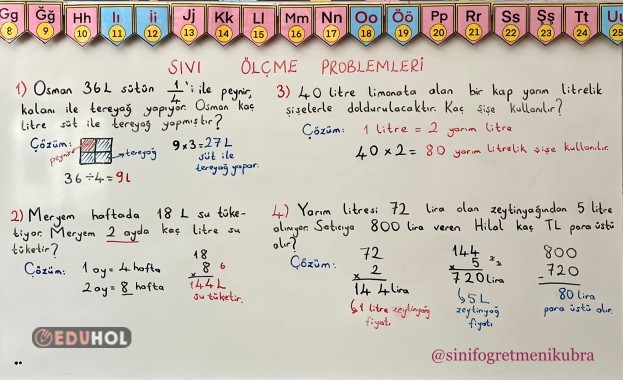 Gg Ğğ Hh Iı İi Jj Kk Ll Mm Nn Oo Öö Pp Rr Ss Şş Tt Uu
8 9 10 11 12 13 14 15 16 17 18 19 20 21 22 23 24 25
SIVI ÖLÇME PROBLEMLERİ
1) Osman 36 L sütün 1/4'i ile peynir,
kalanı ile tereyağ yapıyor. Osman kaç
litre süt ile tereyağ yapmıştır?
Çözüm:
peynir
tereyağ
36 ÷ 4 = 9 L
9 x 3 = 27 L
süt ile
tereyağ yapar.
2) Meryem haftada 18 L su tüke-
tiyor. Meryem 2 ayda kaç litre su
tüketir?
Çözüm: 1 ay = 4 hafta
2 ay = 8 hafta
18
x 8 6
144 L
su tüketir.
3) 40 litre limonata alan bir kap yarım litrelik
şişelerle doldurulacaktır. Kaç şişe kullanılır?
Çözüm: 1 litre = 2 yarım litre
40 x 2 = 80 yarım litrelik şişe kullanılır.
4) Yarım litresi 72 lira olan zeytinyağından 5 litre
alınıyor. Satıcıya 800 lira veren Hilal kaç TL para üstü
alır?
Çözüm:
72
x 2
144 lira
1 litre zeytinyağ
fiyatı
144
x 5 2 2
720 lira
5 L
zeytinyağ
fiyatı
800
- 720
80 lira
para üstü alır.
EDUHOL
@sinifogretmenikubra